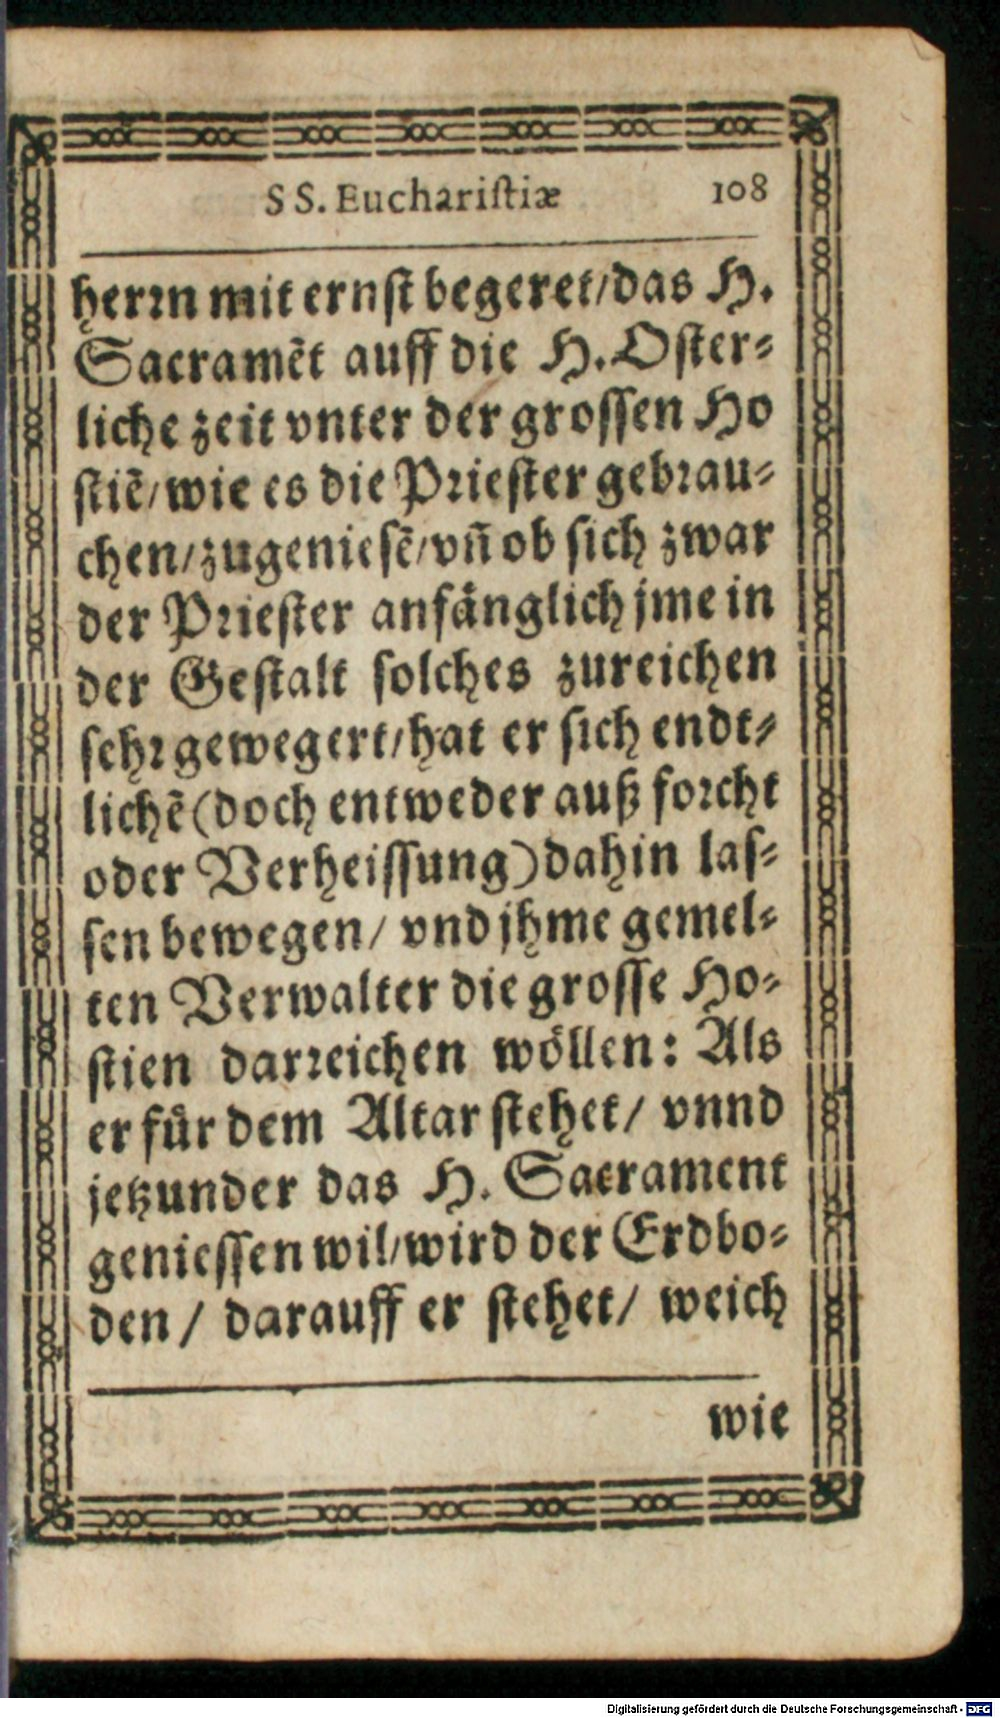 SS. Euchariſtiæ 108
herꝛn mit ernſt begeret/das H.
Sacramẽt auff die H. Oſter⸗
liche zeit vnter der groſſen Ho
ſtiẽ/wie es die Pꝛieſter gebꝛau⸗
chen/zugenieſẽ/vñ ob ſich zwar
der Pꝛieſter anfånglich jme in
der Geſtalt ſolches zureichen
ſehꝛ gewegert/hat er ſich endt⸗
lichẽ (doch entweder auß foꝛcht
oder Verheiſſung) dahin laſ⸗
ſen bewegen/ vnd jhme gemel⸗
ten Verwalter die groſſe Ho⸗
ſtien darꝛeichen woͤllen: Als
er fuͤr dem Altar ſtehet/ vnnd
jetzunder das H. Sacrament
genieſſen wil/wird der Erdbo⸗
den/ darauff er ſtehet/ weich
wie
Digitalisierung gefördert durch die Deutsche Forschungsgemeinschaft - DFG